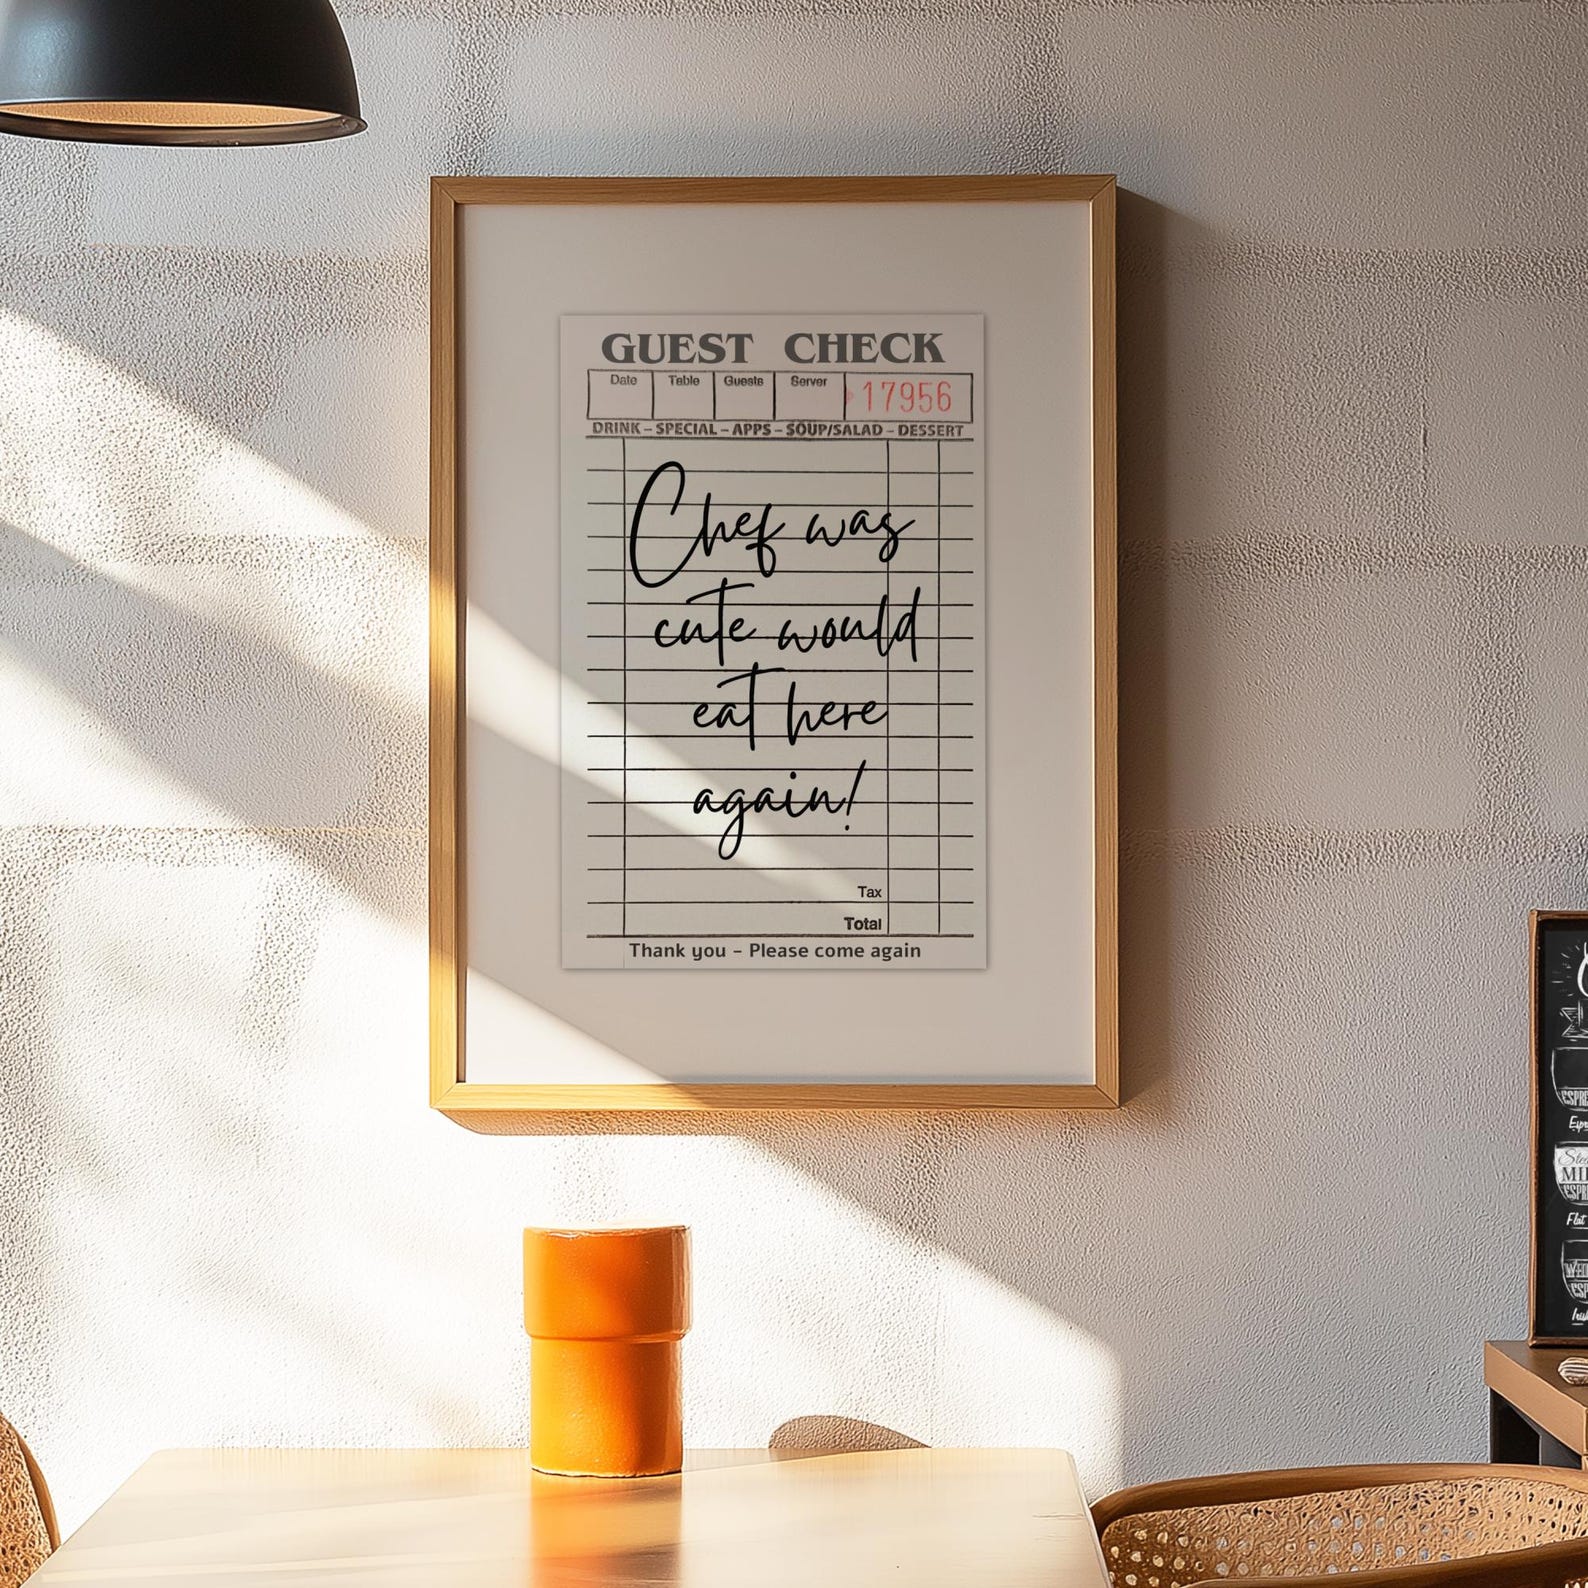 GUEST CHECK
Date Table Guests Server 17956
DRINK – SPECIAL – APPS – SOUP/SALAD – DESSERT
Chef was
cute would
eat here
again!
Tax
Total
Thank you – Please come again
Flat